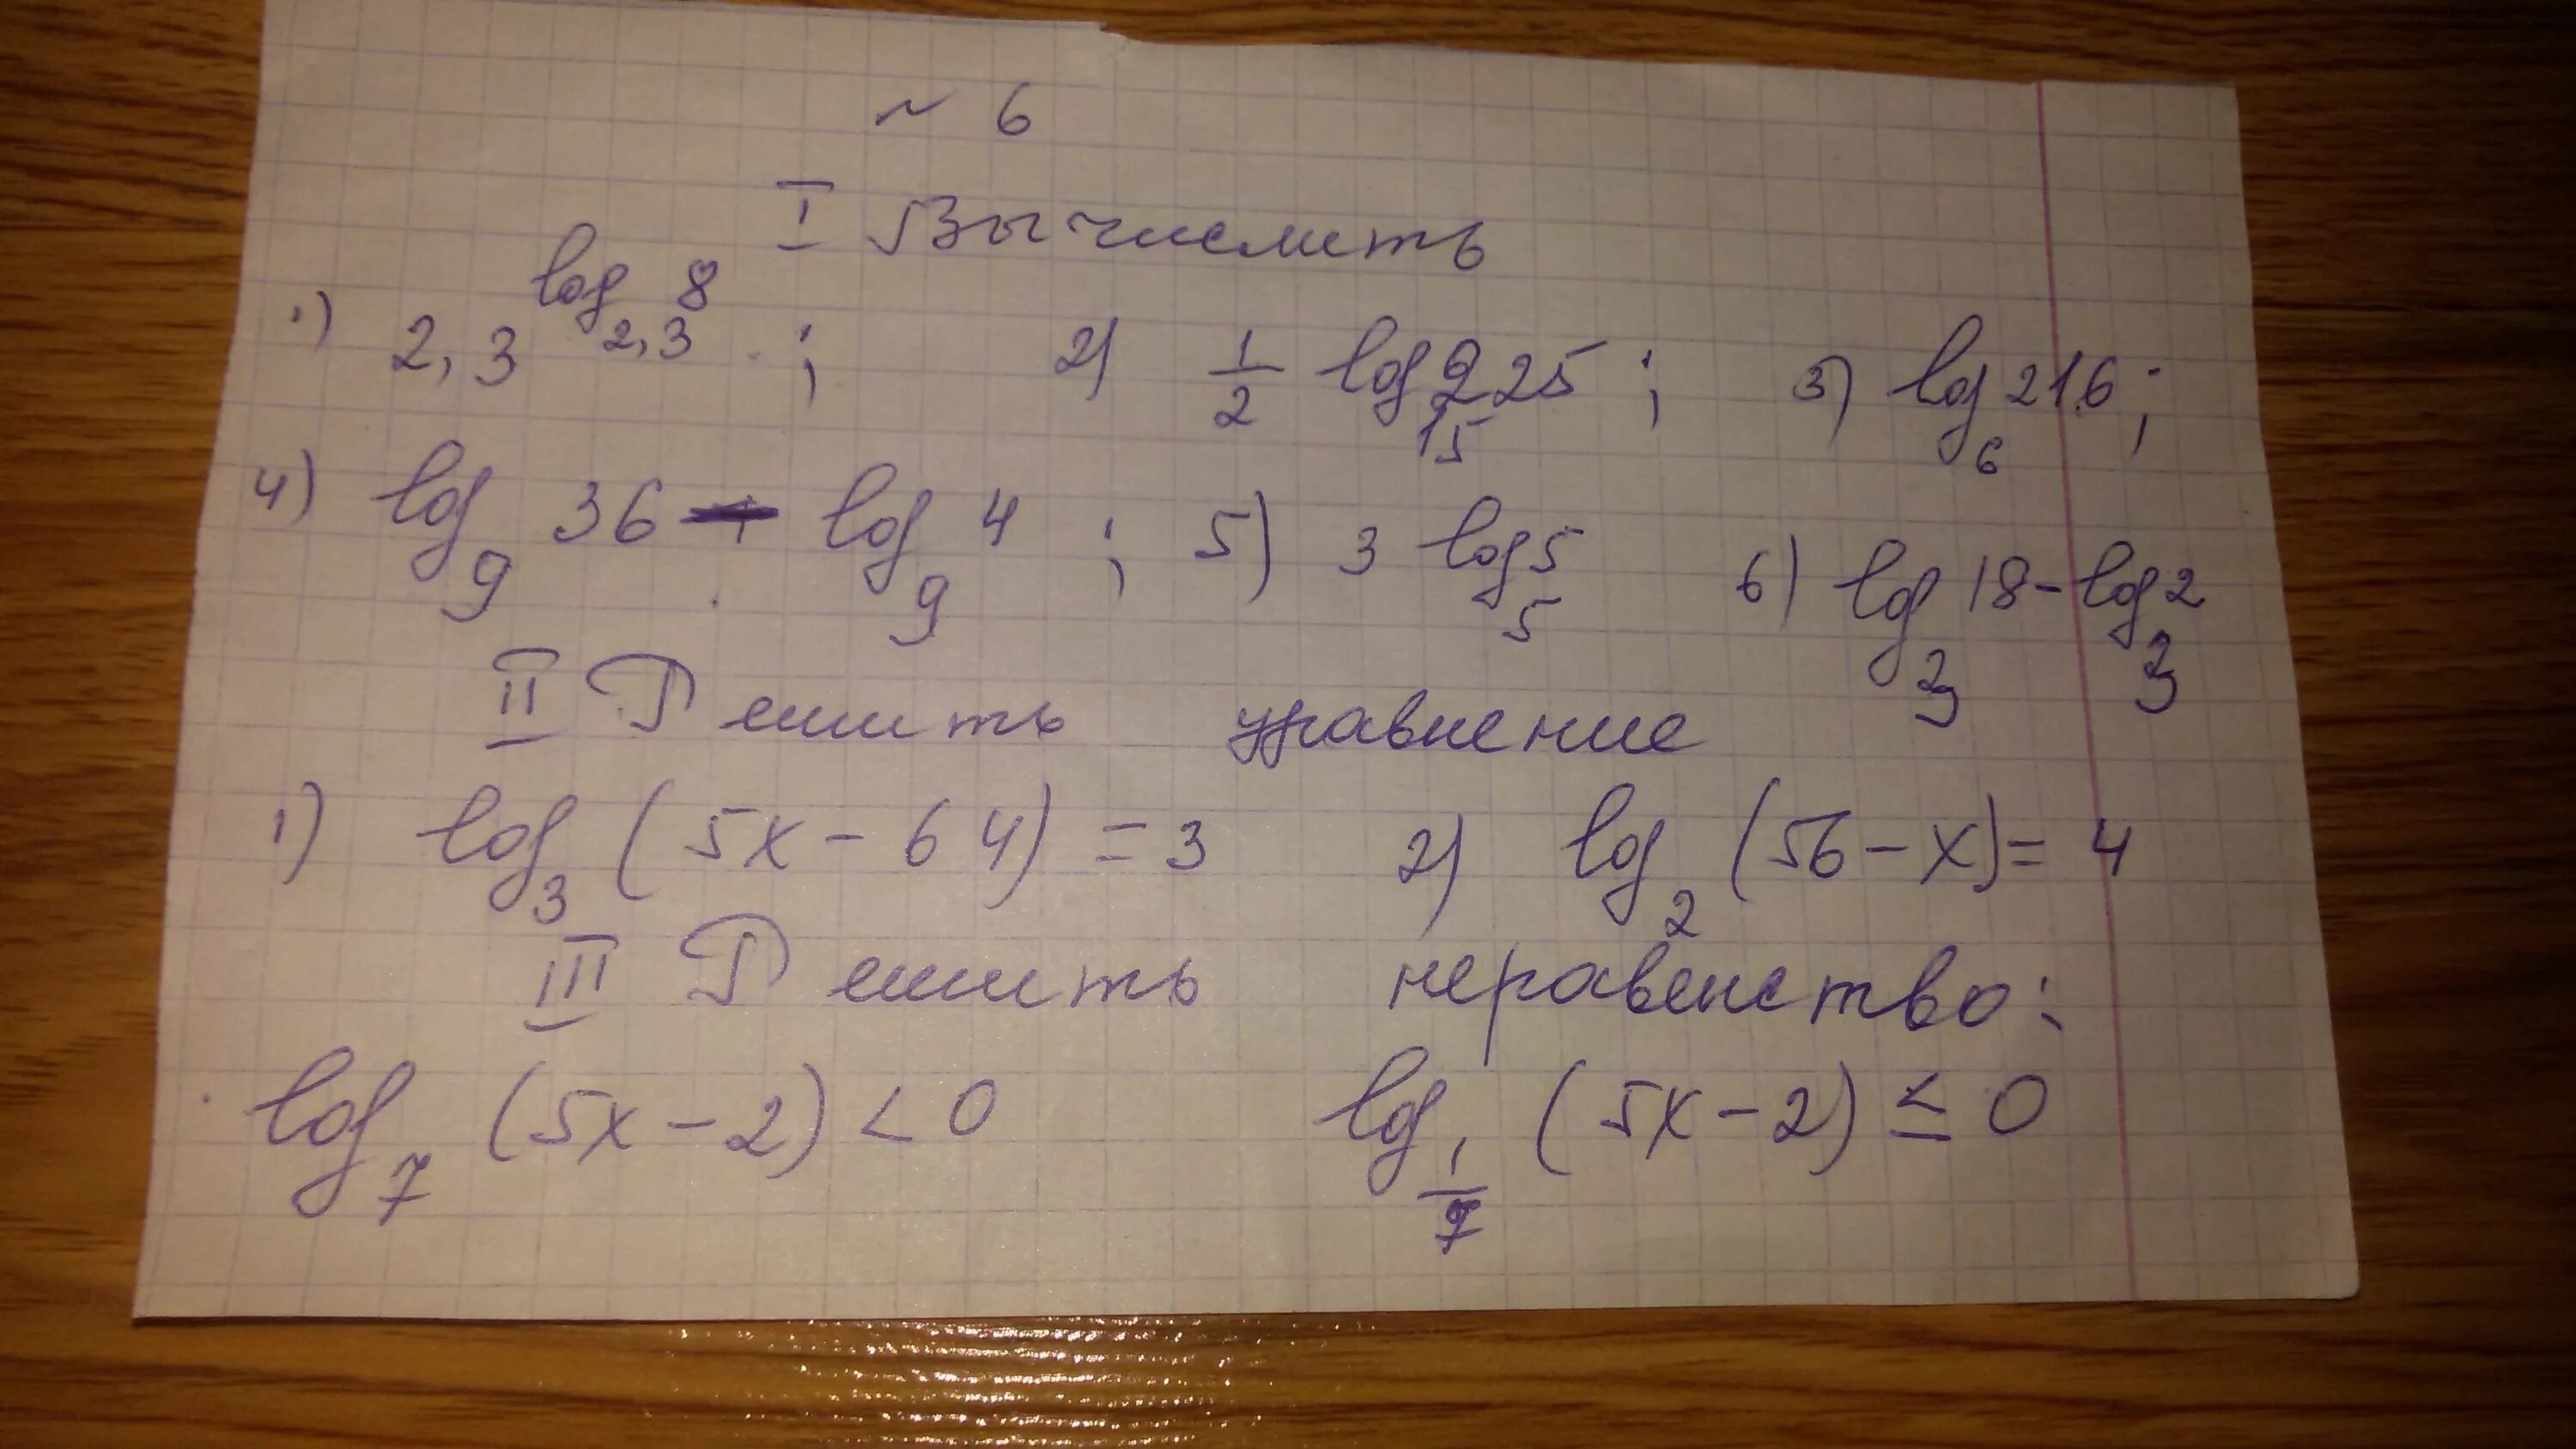 ~ 6
I Вычислить
1) 2,3^{log_{2,3} 8} ; 2) \frac{1}{2} log_{15} 225 ; 3) log_6 216 ;
4) log_9 36 - log_9 4 ; 5) 3 log_5 5 6) log_3 18 - log_3 2
II Решить уравнение
1) log_3 (5x - 64) = 3 2) log_2 (56 - x) = 4
III Решить неравенство:
log_7 (5x - 2) < 0 log_{\frac{1}{7}} (5x - 2) ≤ 0